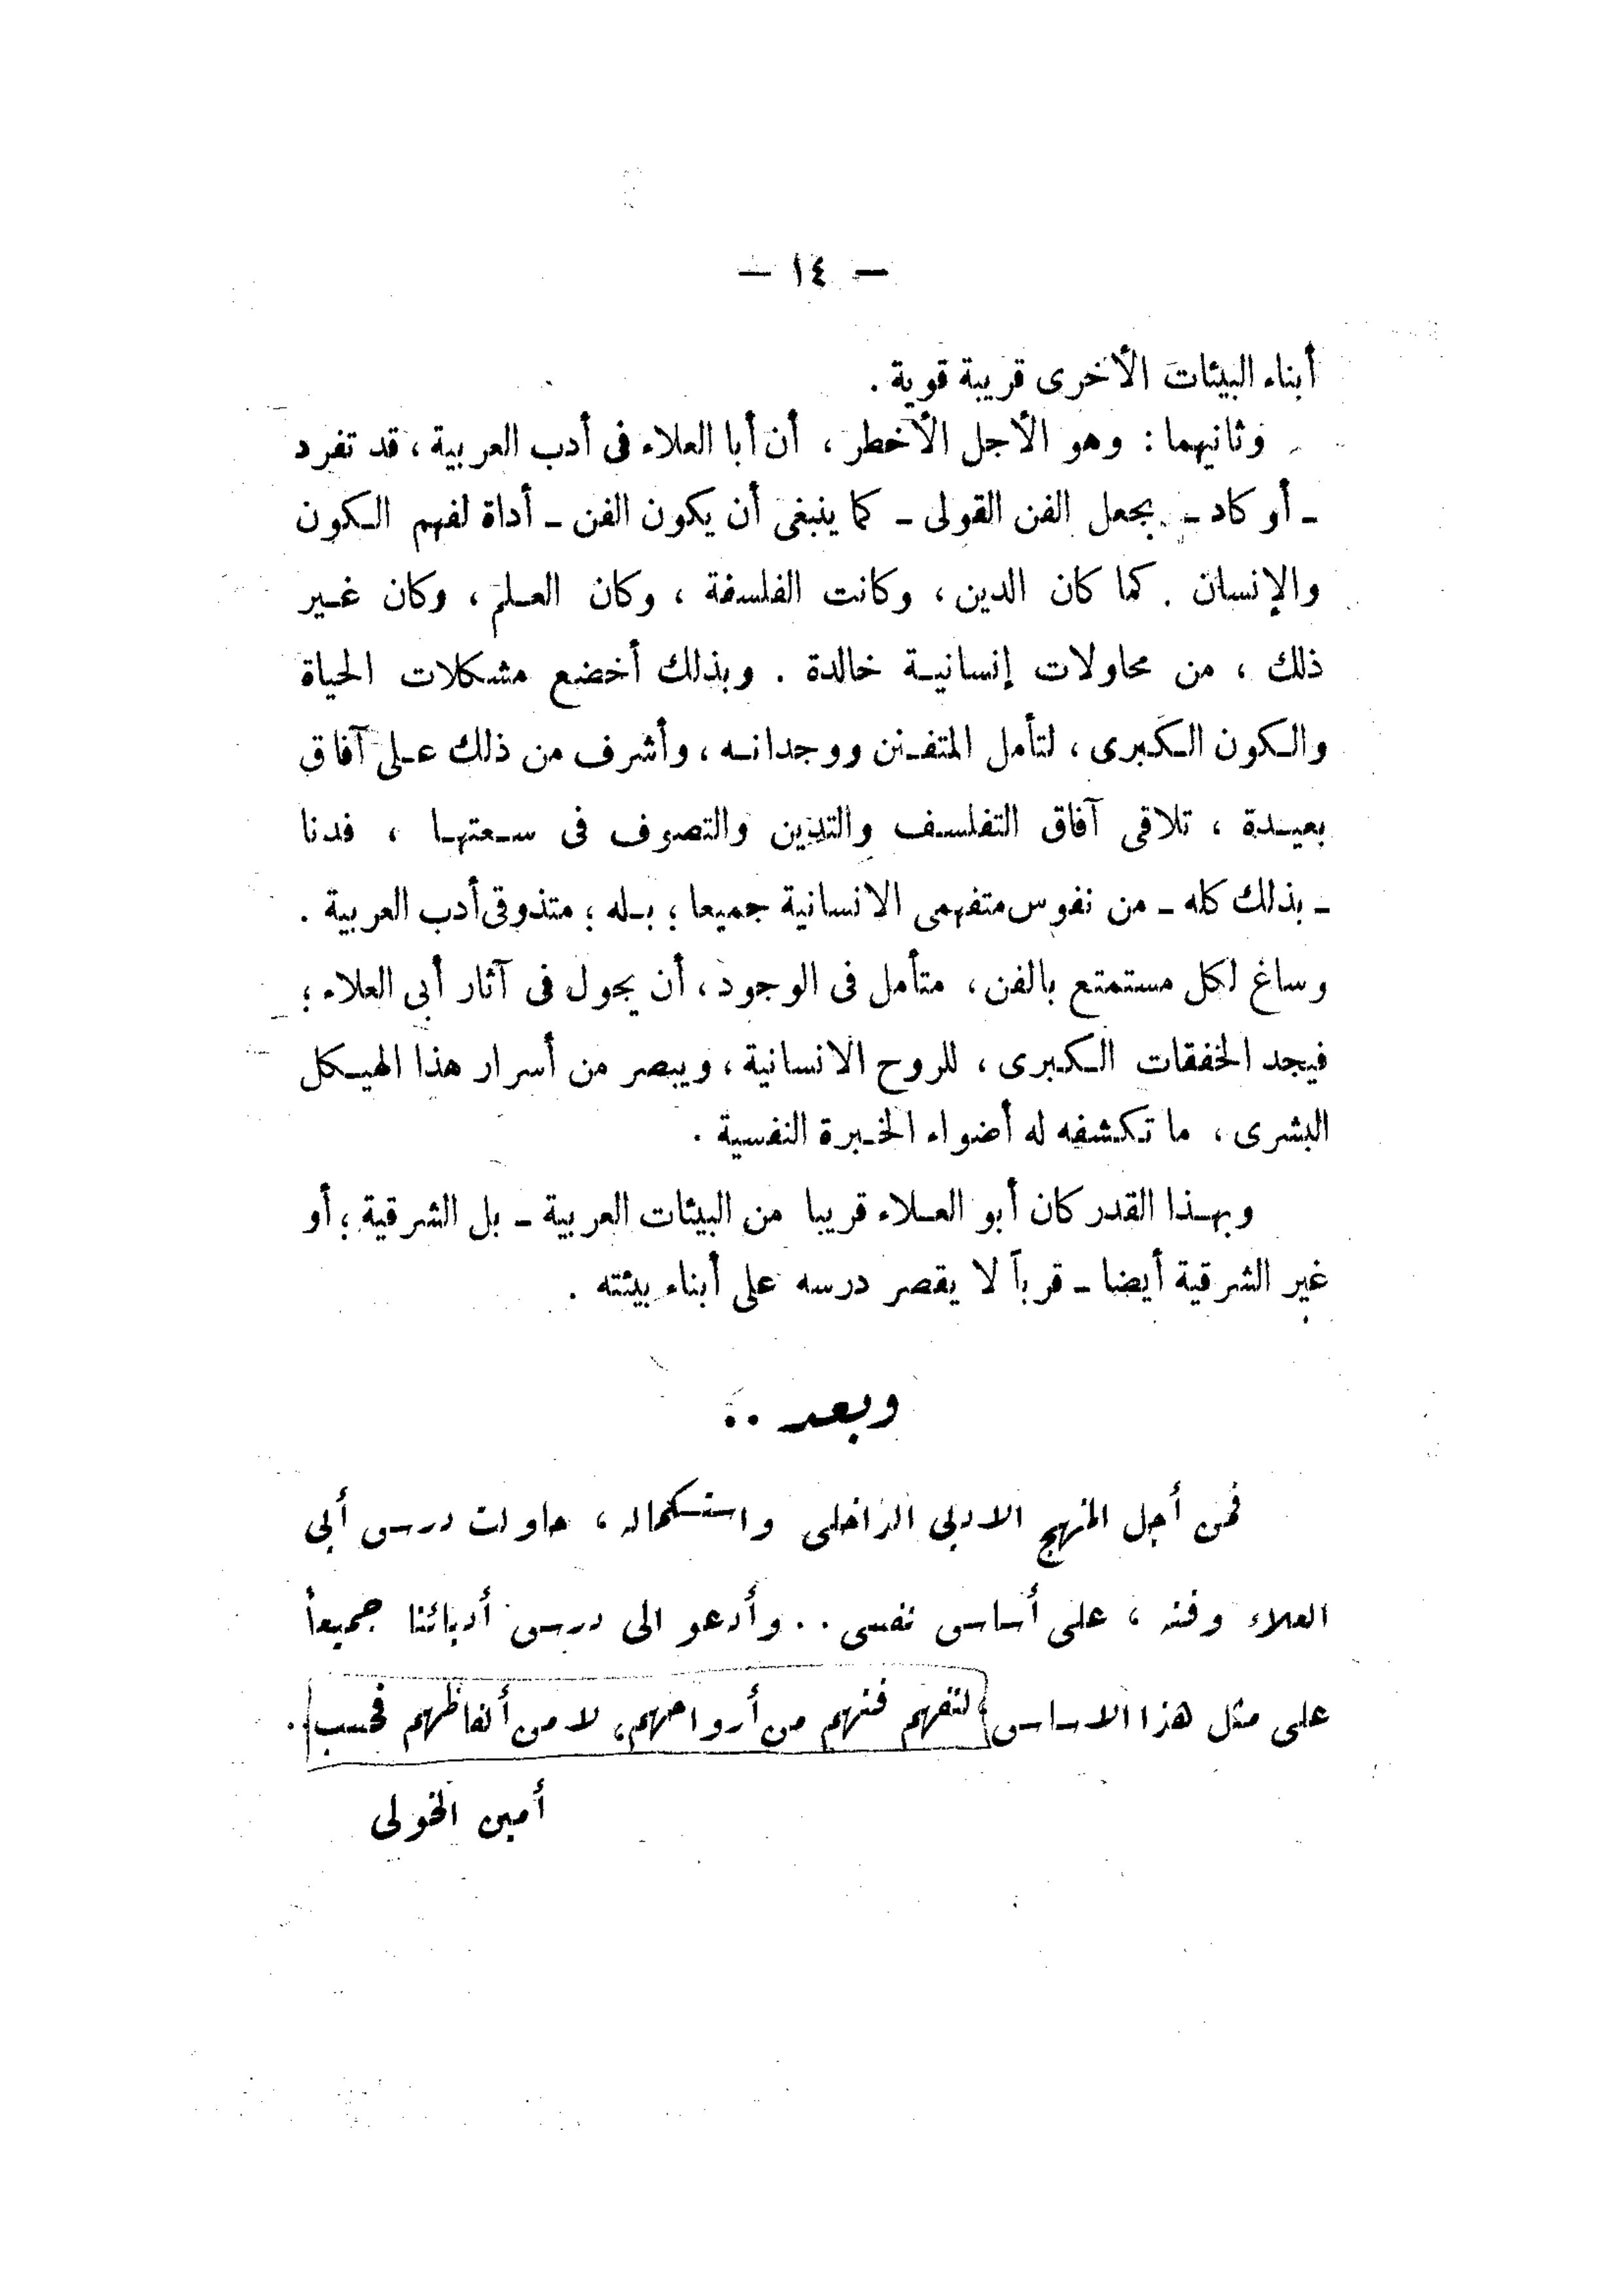 — ١٤ —
أبناء البيئات الأخرى قريبة قوية .
وثانيهما : وهو الأجل الأخطر ، أن أبا العلاء فى أدب العربية ، قد تفرد
ـ أو كاد ـ بجعل الفن القولى ـ كما ينبغى أن يكون الفن ـ أداة لفهم الكون
والإنسان . كما كان الدين ، وكانت الفلسفة ، وكان العلم ، وكان غير
ذلك ، من محاولات إنسانية خالدة . وبذلك أخضع مشكلات الحياة
والكون الكبرى ، لتأمل المتفنن ووجدانه ، وأشرف من ذلك على آفاق
بعيدة ، تلاقى آفاق التفلسف والتدين والتصوف فى سعتها ، فدنا
ـ بذلك كله ـ من نفوس متفهمى الانسانية جميعا ؛ بله ؛ متذوقى أدب العربية .
وساغ لكل مستمتع بالفن ، متأمل فى الوجود ، أن يجول فى آثار أبى العلاء ؛
فيجد الخفقات الكبرى ، للروح الانسانية ، ويبصر من أسرار هذا الهيكل
البشرى ، ما تكشفه له أضواء الخبرة النفسية .
وبهذا القدر كان أبو العلاء قريبا من البيئات العربية ـ بل الشرقية ؛ أو
غير الشرقية أيضا ـ قرباً لا يقصر درسه على أبناء بيئته .
وبعد ..
فمن أجل المنهج الادبى الداخلى واستكماله ، حاولت درس أبى
العلاء وفنه ، على أساس نفسى .. وأدعو الى درس أدبائنا جميعاً
على مثل هذا الاساس ؛ لتفهم فنهم من أرواحهم ، لا من ألفاظهم فحسب .
أمين الخولى